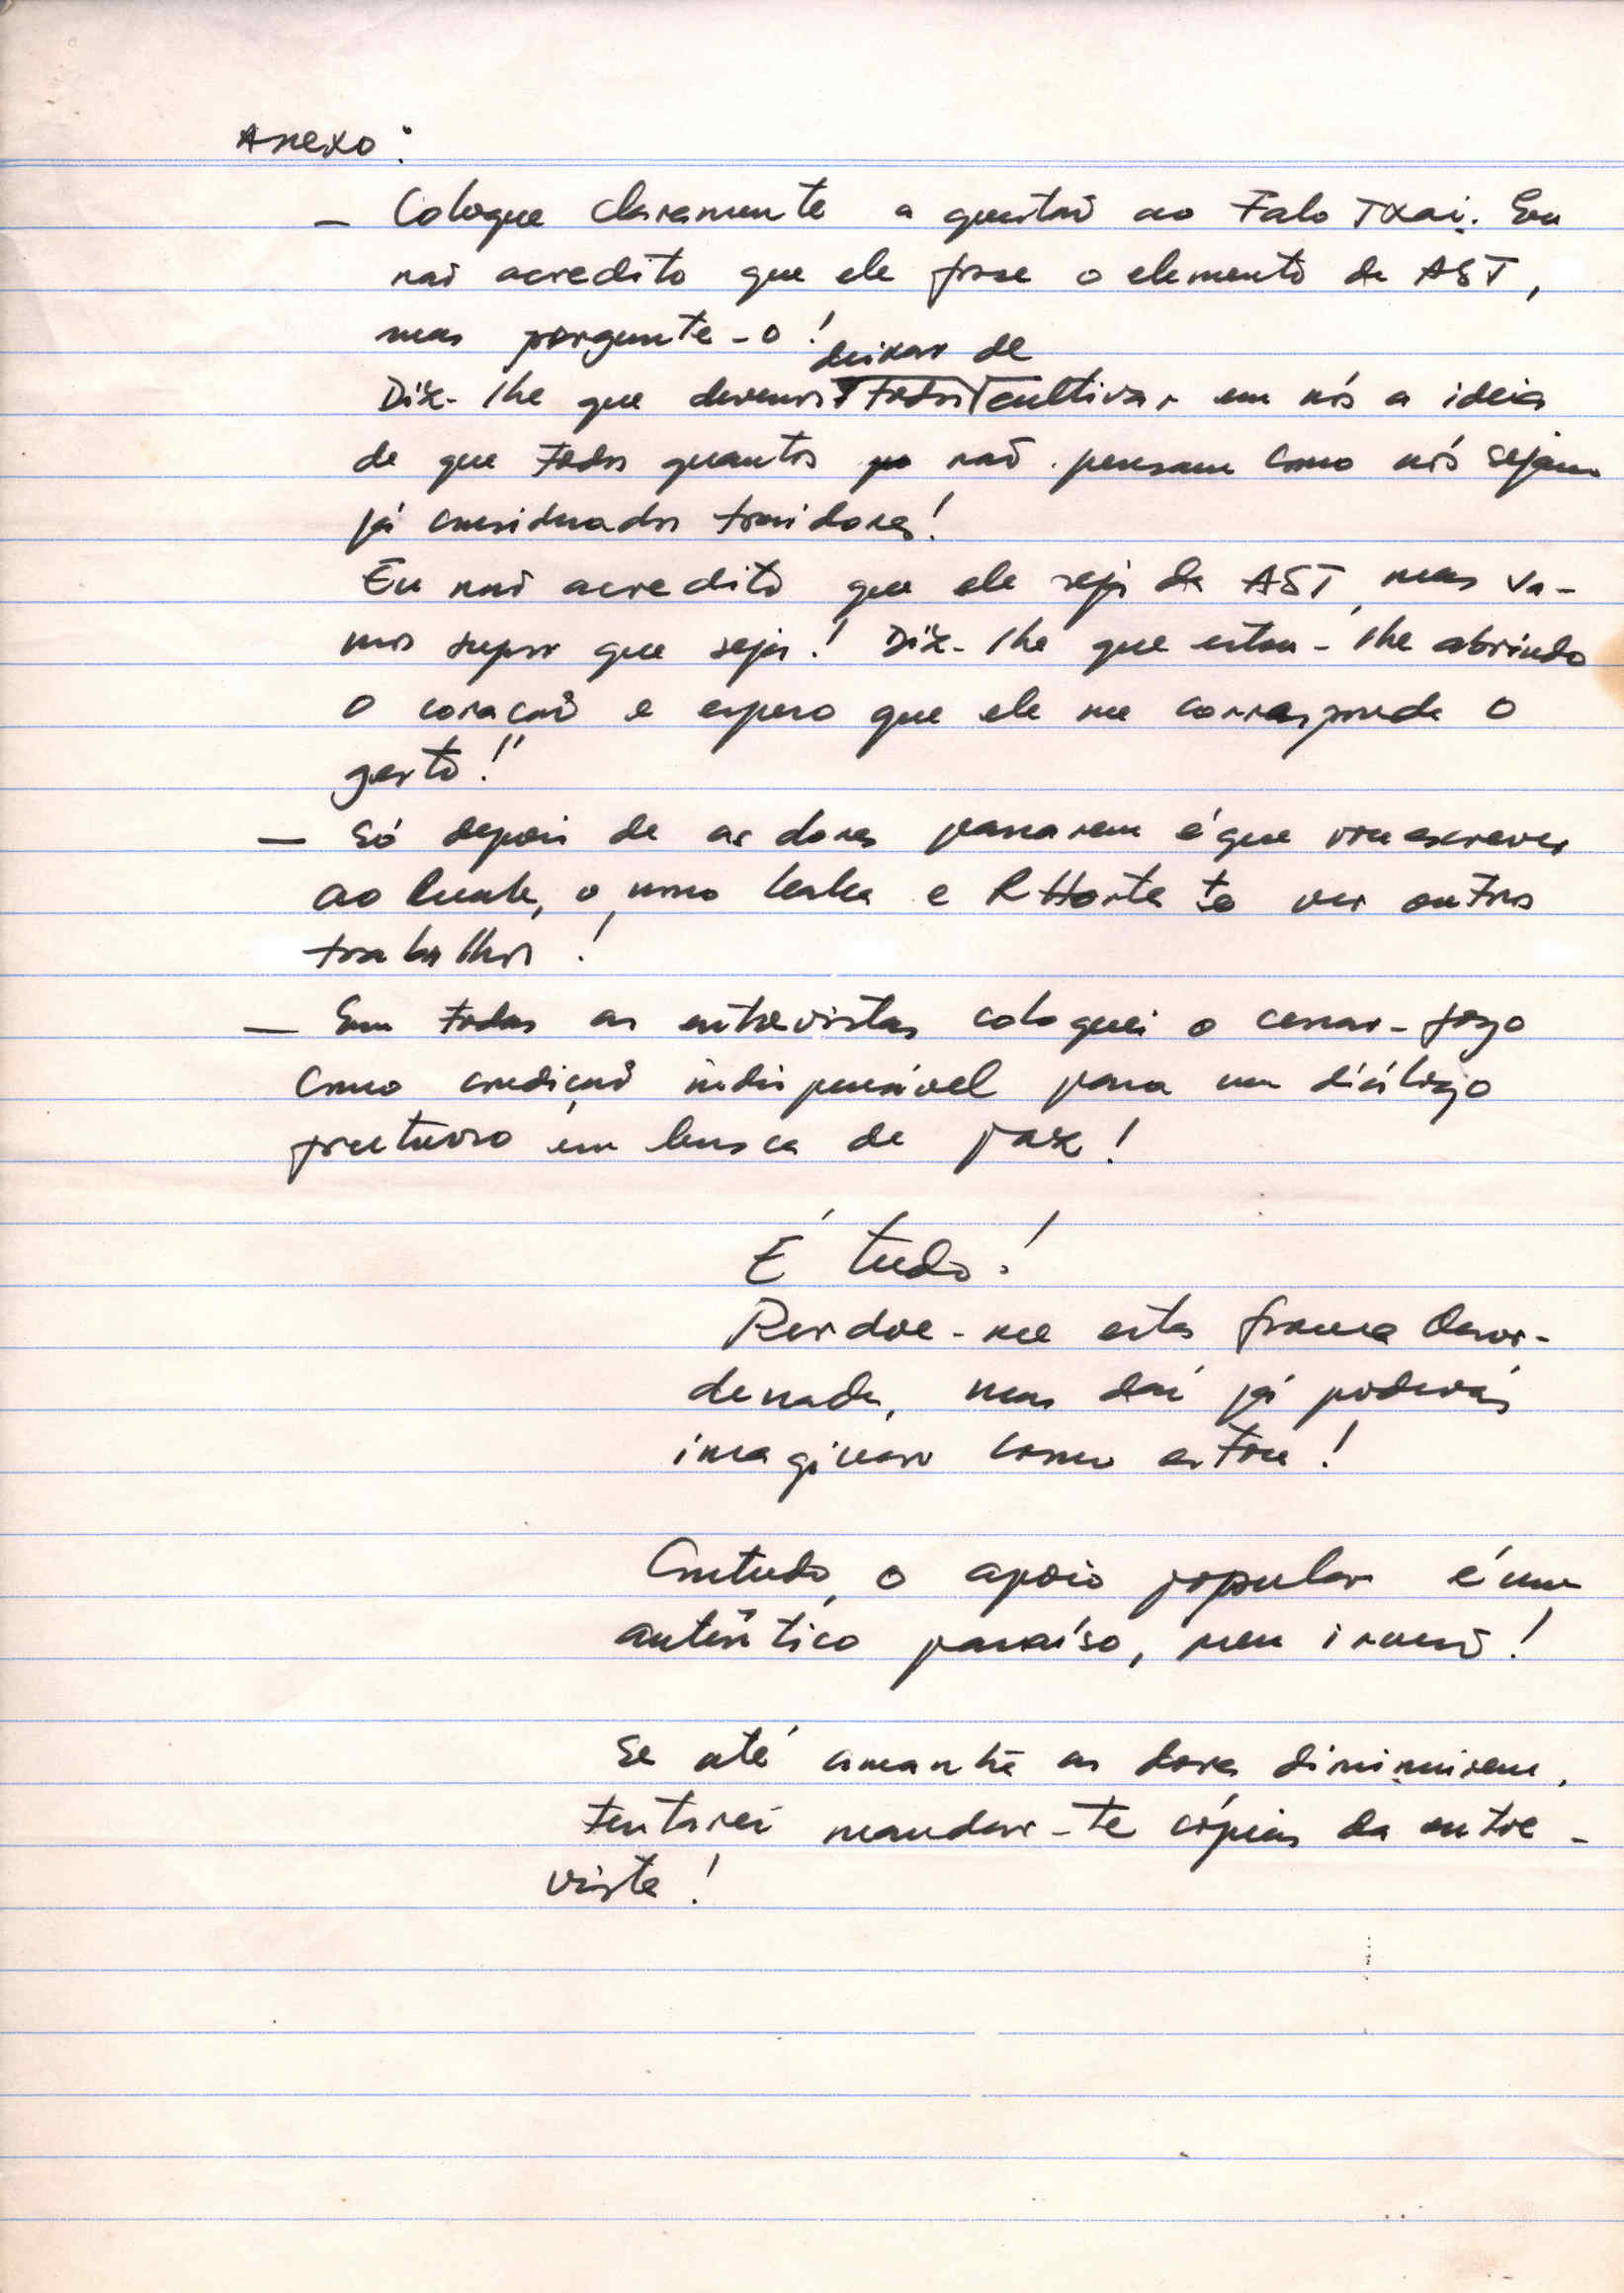 Anexo:
– Coloque claramente a questão ao Falo Txai. Eu
não acredito que ele fosse o elemento da AST,
mas pergunte-o!
deixar de
Diz-lhe que devemos todos cultivar em nós a ideia
de que todos quantos não pensam como nós sejam
já considerados traidores!
Eu não acredito que ele seja da AST, mas va-
mos supor que seja! Diz-lhe que estou-lhe abrindo
o coração e espero que ele me corresponda o
gesto!"
– Só depois de as dores passarem é que vou escrever
ao, o nosso e R Horta to ver outros
trabalhos!
– Em todas as entrevistas coloquei o cessar-fogo
como condição indispensável para um diálogo
frutuoso em busca de paz!
É tudo!
Perdoe-me esta forma desor-
denada, mas daí já poderás
imaginar como estou!
Contudo, o apoio popular é um
autêntico paraíso, meu irmão!
Se até amanhã as dores diminuirem,
tentarei mandar-te cópias da entre-
vista!